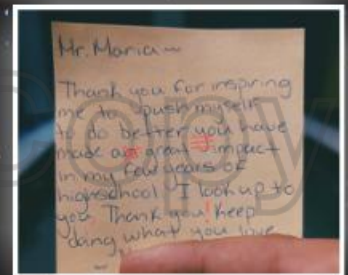 Mr. Maria ~
Thank you for inspiring
me to push myself
to do better you have
made a great impact
in my few years of
highschool I look up to
you. Thank you! Keep
doing what you love
Copy